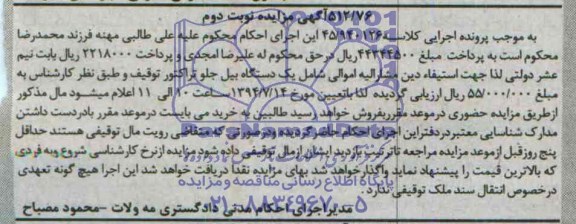 ۵۱۲/۷۶آگهی مزایده نوبت دوم
به موجب پرونده اجرایی کلاسه ۴۵/۹۴۰۱۲۶ این اجرای احکام محکوم علیه علی طالبی مهنه فرزند محمدرضا
محکوم است به پرداخت مبلغ ۴۴۳۴۲۵۰۰ریال در حق محکوم له علیرضا امجدی و پرداخت ۲۲۱۸۰۰۰ ریال بابت نیم
عشر دولتی لذا جهت استیفاء دین مشارالیه اموالی شامل یک دستگاه بیل جلو تراکتور توقیف و طبق نظر کارشناس به
مبلغ ۵۵/۰۰۰/۰۰۰ ریال ارزیابی گردیده لذا باتعیین مورخ ۱۳۹۴/۷/۱۴ ساعت ۱۰ الی ۱۱ اعلام میشود مال مذکور
ازطریق مزایده حضوری درموعد مقرربفروش خواهد رسید طالبین به خرید می بایست درموعد مقرر بادردست داشتن
مدارک شناسایی معتبردردفتراین اجرای احکام حاضرگردیده ودرصورتی که متقاضی رویت مال توقیفی هستند حداقل
پنج روزقبل ازموعد مزایده مراجعه تاترتیب بازدید ایشان ازمال توقیفی داده شود مزایده ازنرخ کارشناسی شروع وبه فردی
که بالاترین قیمت را پیشنهاد نماید واگذارخواهد شد بهای مزایده نقدا دریافت خواهد شد این اجرا هیچ گونه تعهدی
درخصوص انتقال سند ملک توقیفی ندارد.
پایگاه اطلاع رسانی مناقصه و مزایده
مدیراجرای احکام مدنی دادگستری مه ولات -محمود مصباح
۰۲۱-۸۸۳۴۹۶۷۰-۵